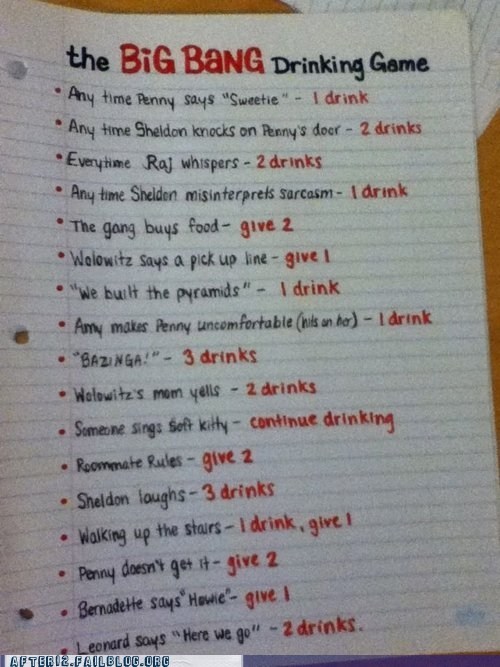 the BiG BANG Drinking Game
• Any time Penny says "Sweetie" - 1 drink
• Any time Sheldon knocks on Penny's door - 2 drinks
• Everytime Raj whispers - 2 drinks
• Any time Sheldon misinterprets sarcasm - 1 drink
• The gang buys food - give 2
• Wolowitz says a pick up line - give 1
• "We built the pyramids" - 1 drink
• Amy makes Penny uncomfortable (hits on her) - 1 drink
• "BAZINGA!" - 3 drinks
• Wolowitz's mom yells - 2 drinks
• Someone sings Soft kitty - continue drinking
• Roommate Rules - give 2
• Sheldon laughs - 3 drinks
• Walking up the stairs - 1 drink, give 1
• Penny doesn't get it - give 2
• Bernadette says "Howie" - give 1
• Leonard says "Here we go" - 2 drinks.
AFTER12.FAILBLOG.ORG